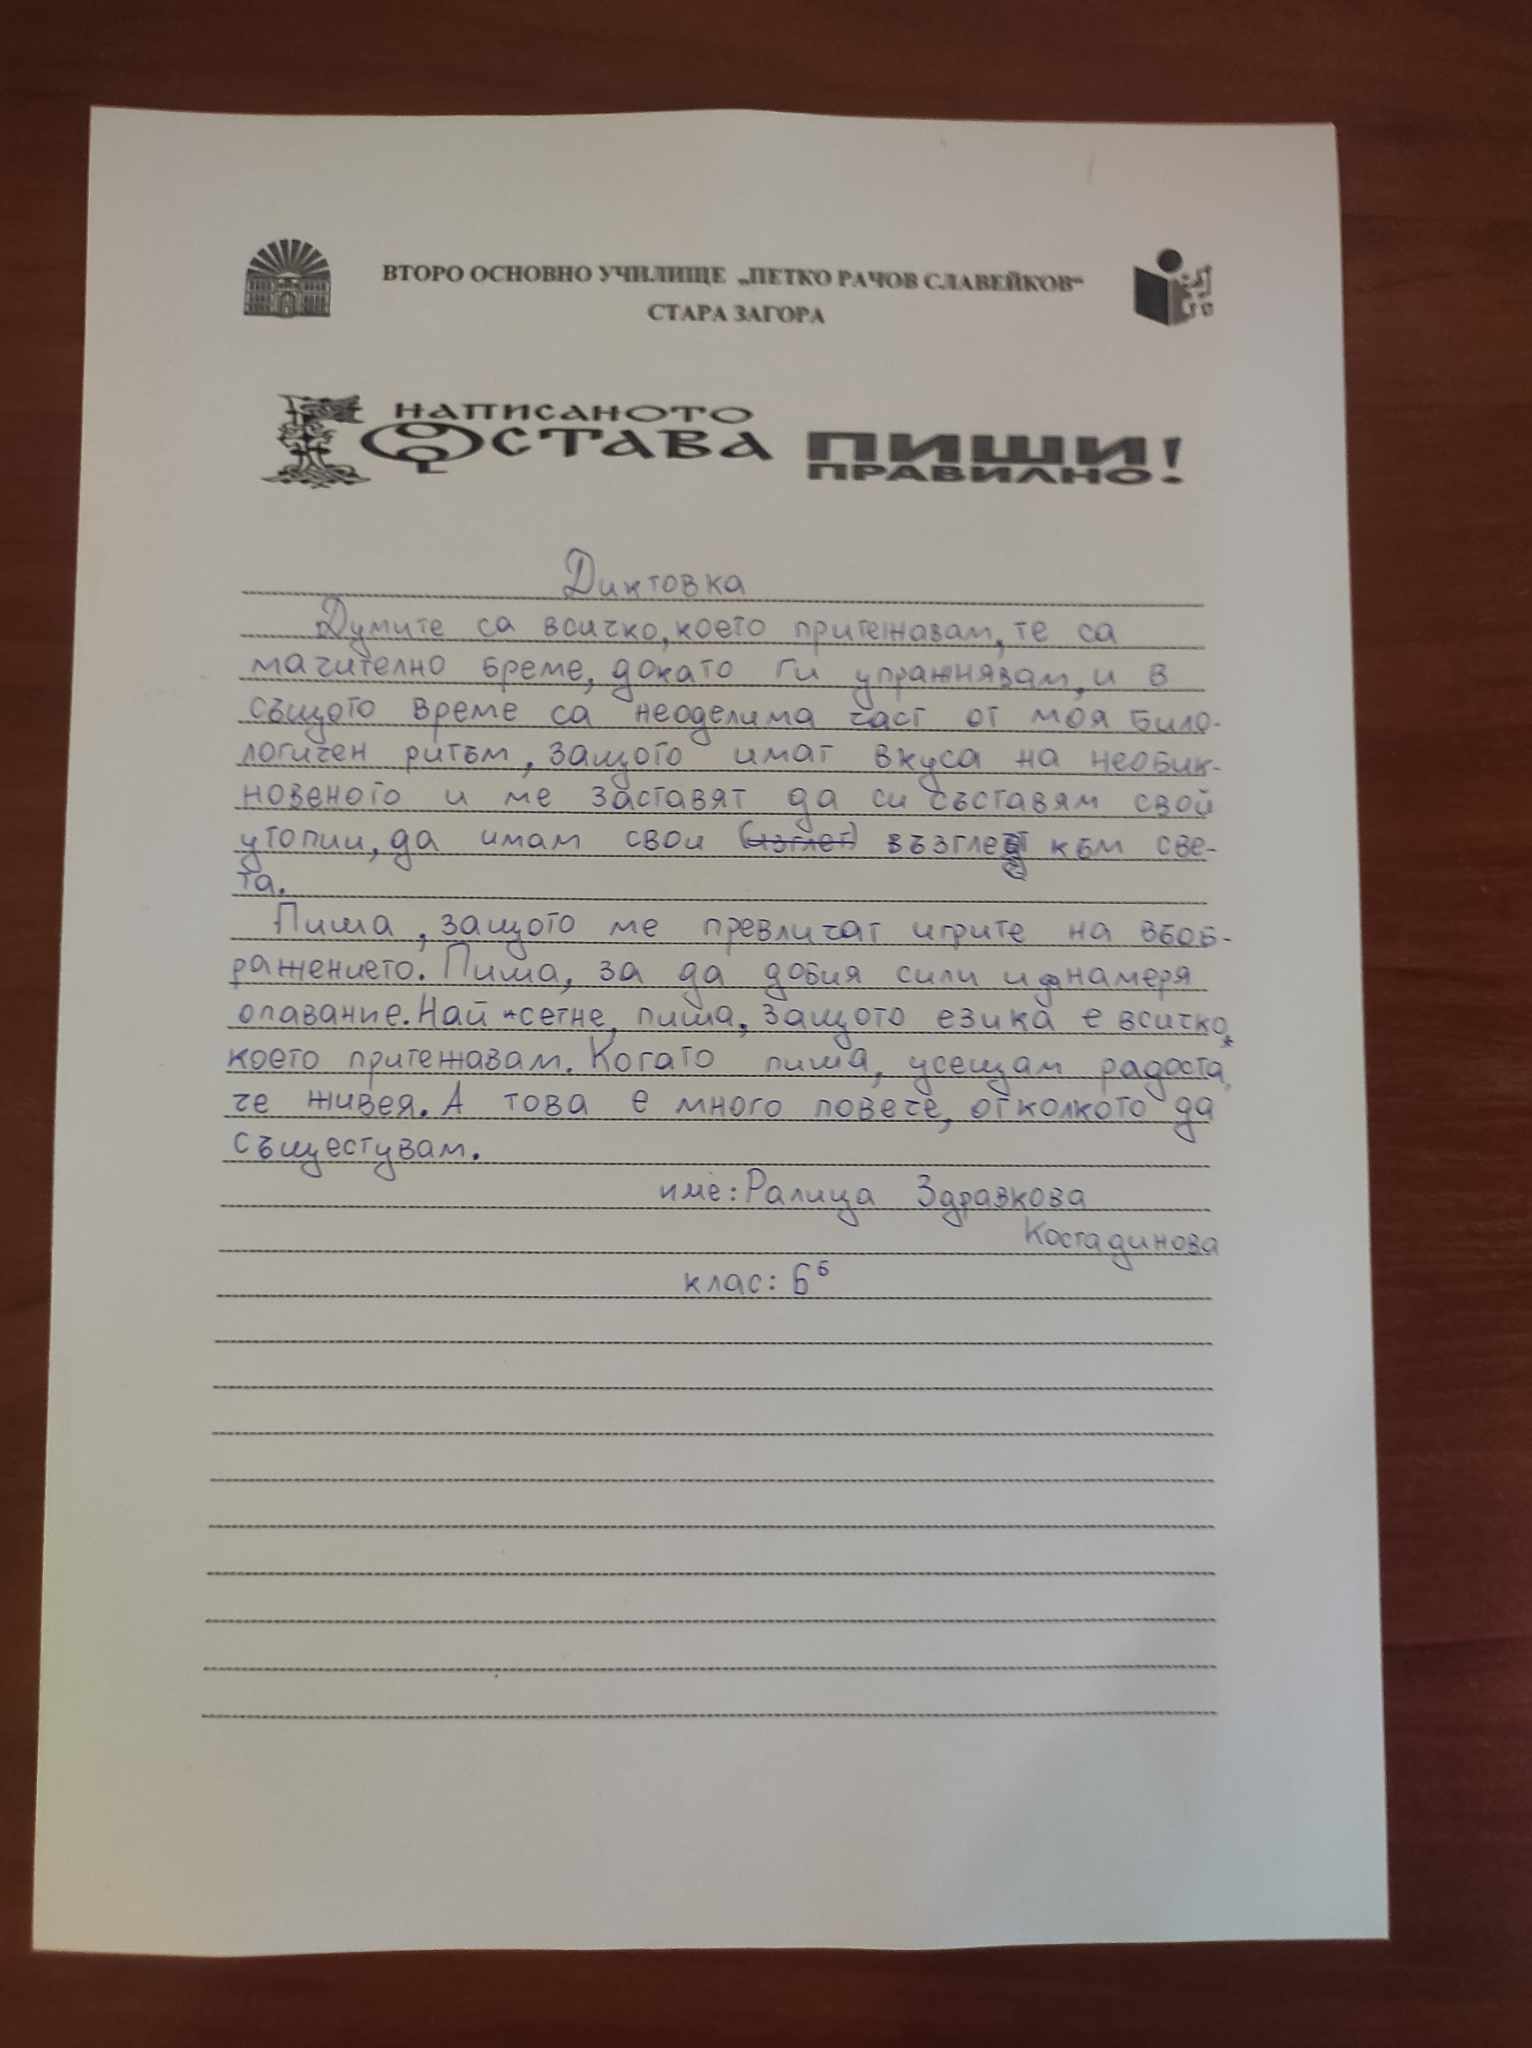 ВТОРО ОСНОВНО УЧИЛИЩЕ „ПЕТКО РАЧОВ СЛАВЕЙКОВ“
СТАРА ЗАГОРА
НАПИСАНОТО
ОСТАВА
ПИШИ!
ПРАВИЛНО!
Диктовка
Думите са всичко, което притежавам, те са
мачително бреме, докато ги упражнявам, и в
същото време са неоделима част от моя било-
логичен ритъм, защото имат вкуса на необик-
новеното и ме заставят да си съставям свой
утопии, да имам свои (изглет) възглед към све-
та.
Пиша, защото ме превличат игрите на въоб-
ражението. Пиша, за да добия сили и да намеря
опавание. Най-сетне, пиша, защото езика е всичко,
което притежавам. Когато пиша, усещам радоста,
че живея. А това е много повече, отколкото да
същестувам.
име: Ралица Здравкова
Костадинова
клас: 6б